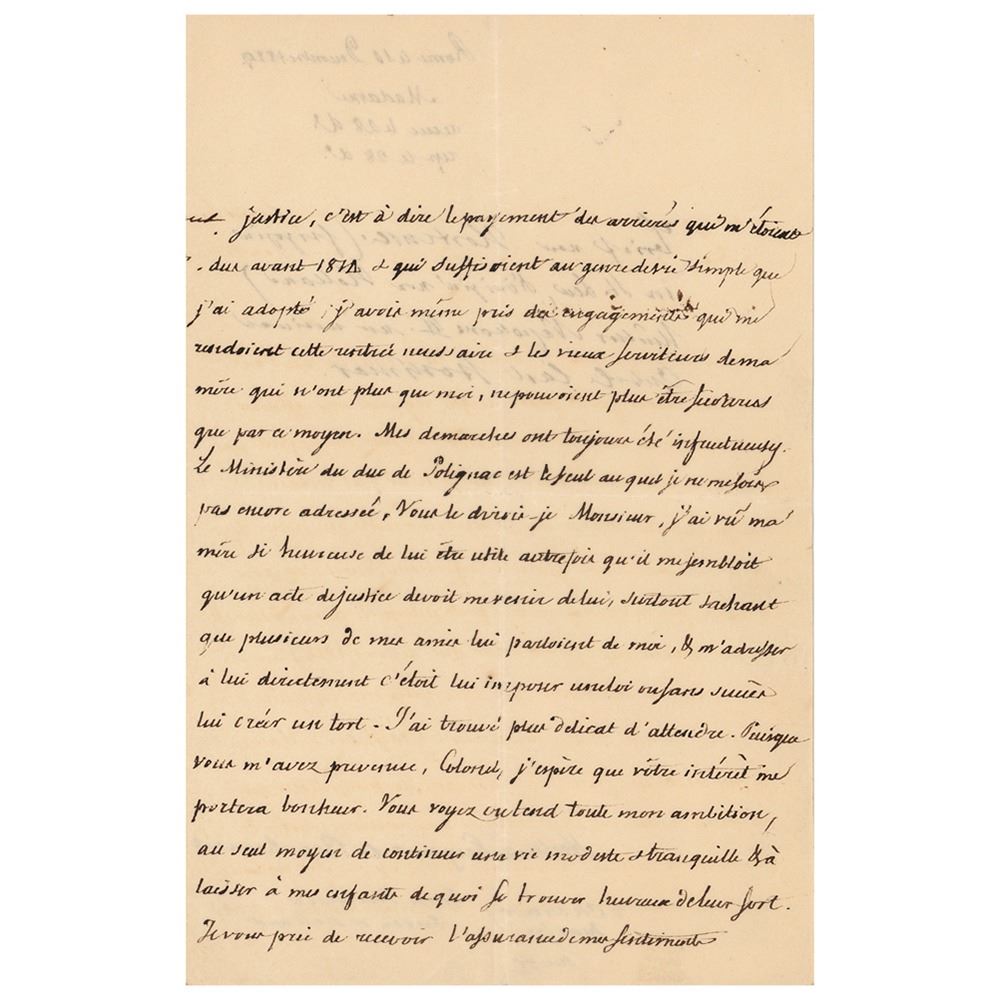 justice, c'est à dire le payement des arrierés qui m'étoient
dus avant 1814 & qui suffisoient au genre de vie simple que
j'ai adopté, j'avois même pris des engagements que me
rendoient cette rentrée necessaire & les vieux serviteurs de ma
mère qui n'ont plus que moi, ne pouvoient plus être secourus
que par ce moyen. Mes demarches ont toujours été infructueuses.
Le Ministère du duc de Polignac est le seul auquel je ne me sois
pas encore adressée, Vous le dirois-je Monsieur, j'ai vû ma
mère si heureuse de lui être utile autrefois qu'il me sembloit
qu'un acte de justice devoit me venir de lui, surtout sachant
que plusieurs de mes amies lui parloient de moi, & m'adresser
à lui directement c'étoit lui imposer une loi ou sans succès
lui créer un tort - J'ai trouvé plus délicat d'attendre. Puisque
vous m'avez prevenue, Colonel, j'espère que vôtre intérêt me
portera bonheur. Vous voyez où tend toute mon ambition,
au seul moyen de continuer une vie modeste & tranquille & à
laisser à mes enfants de quoi se trouver heureux de leur sort.
Je vous prie de recevoir l'assurance de mes sentiments